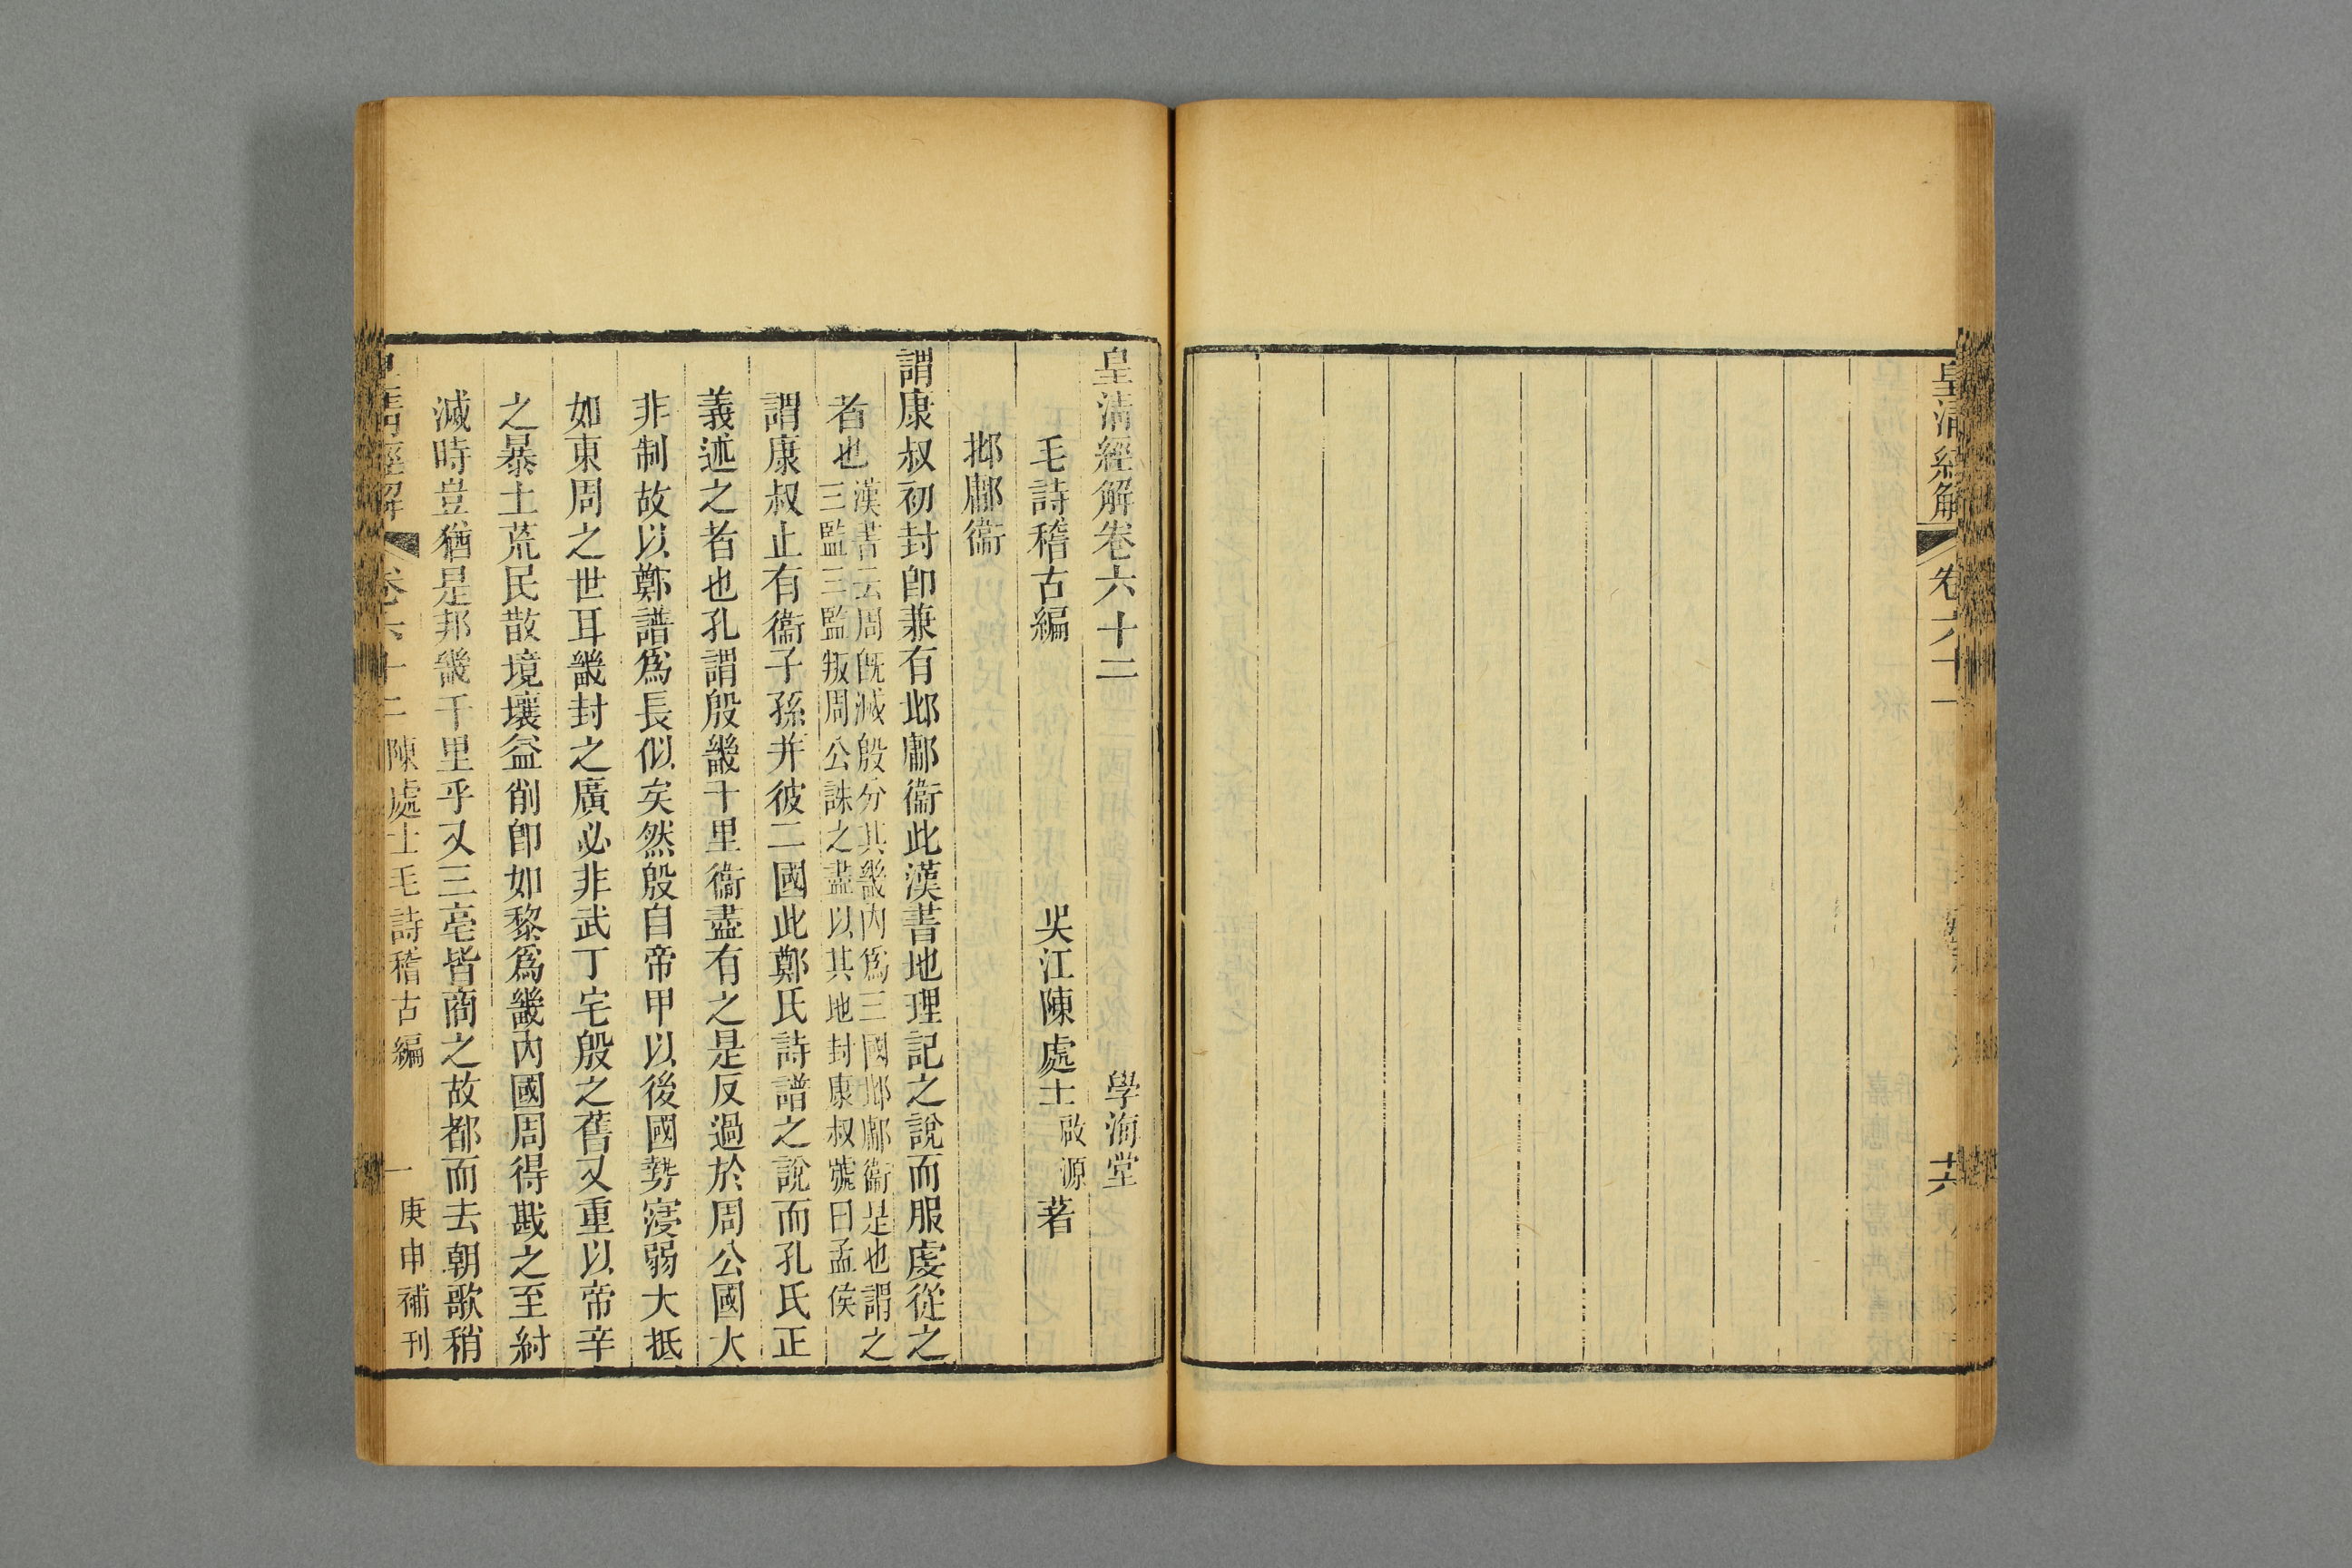 皇清經解
卷六十一
皇清經解卷六十二
學海堂
毛詩稽古編
吳江陳處士啟源著
邶鄘衞
謂康叔初封卽兼有邶鄘衞此漢書地理記之說而服虔從之
者也漢書云周旣滅殷分其畿内爲三國邶鄘衞是也謂之
三監三監叛周公誅之盡以其地封康叔號曰孟侯
謂康叔止有衞子孫并彼二國此鄭氏詩譜之說而孔氏正
義述之者也孔謂殷畿千里衞盡有之是反過於周公國大
非制故以鄭譜爲長似矣然殷自帝甲以後國勢寖弱大抵
如東周之世耳畿封之廣必非武丁宅殷之舊又重以帝辛
之暴土荒民散境壤益削卽如黎爲畿内國周得戡之至紂
滅時豈猶是邦畿千里乎又三亳皆商之故都而去朝歌稍
皇清經解
卷六十二
陳處士毛詩稽古編
一
庚申補刊